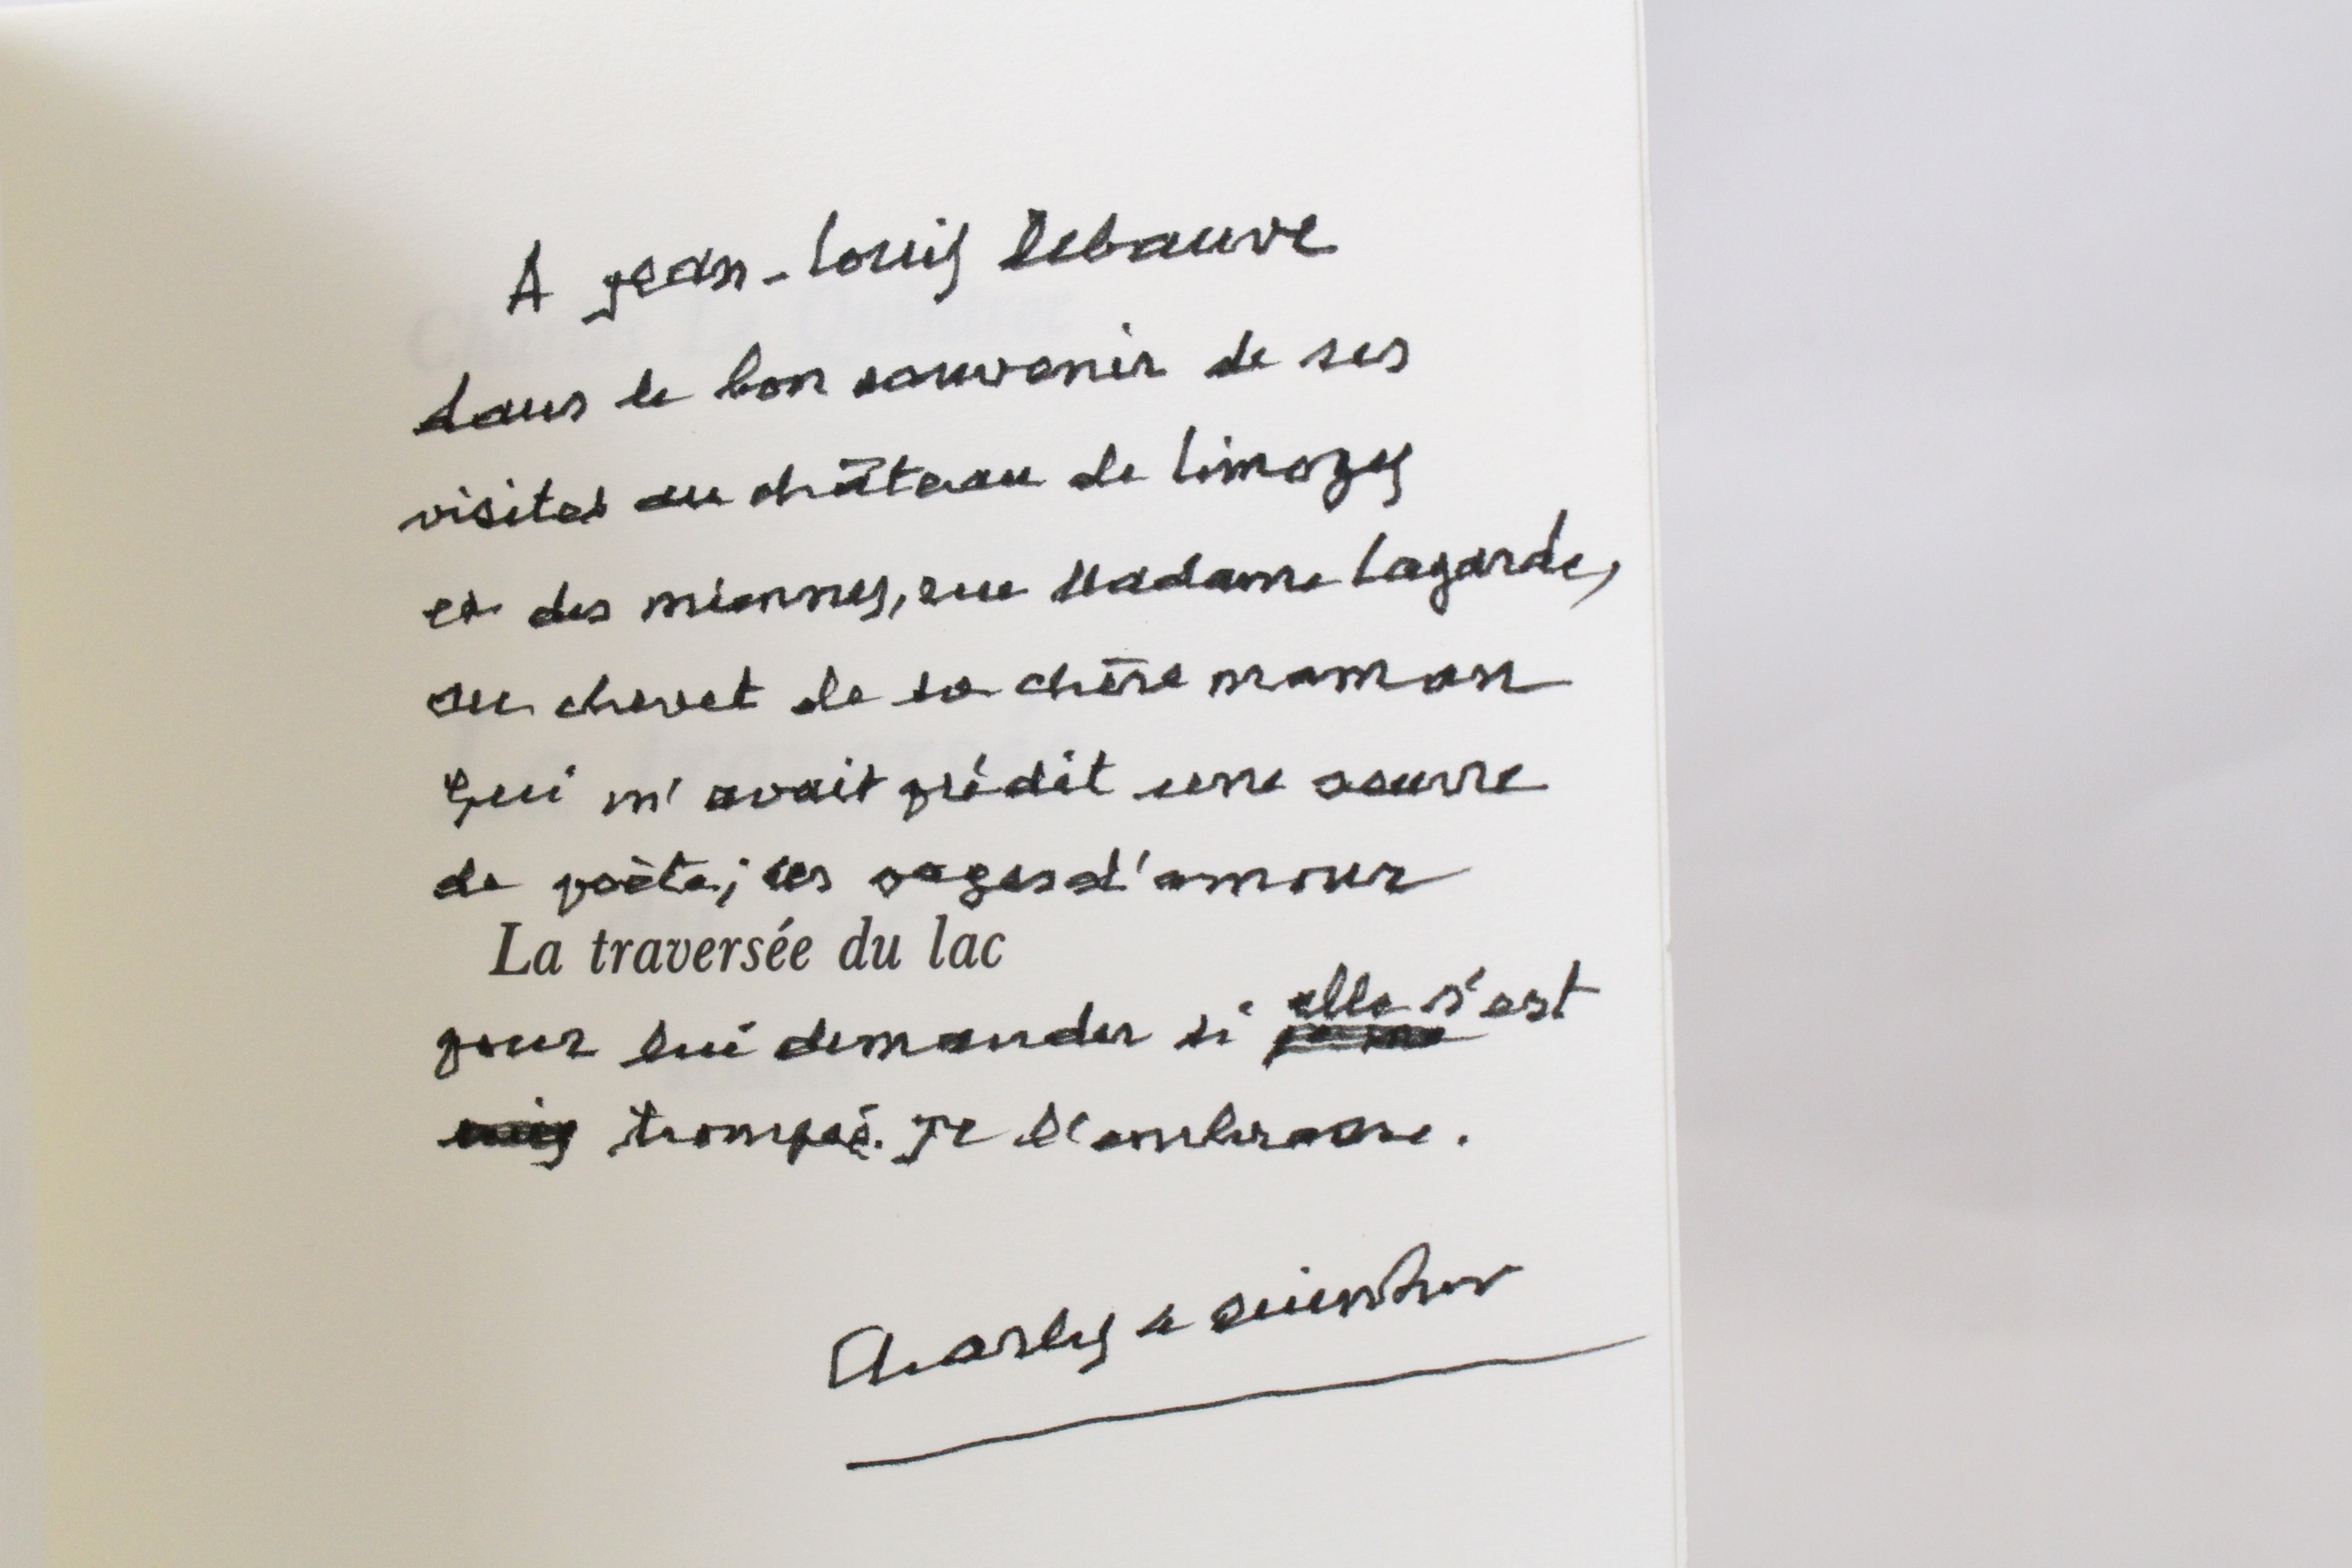 A Jean-Louis Debauve
dans le bon souvenir de ses
visites au château de Limoges
et des miennes, rue Madame Lagarde,
au chevet de sa chère maman
qui m'avait prédit une œuvre
de poète; ces pages d'amour
La traversée du lac
pour lui demander si elle s'est
trompée. Je l'embrasse.
Charles Le Quintrec